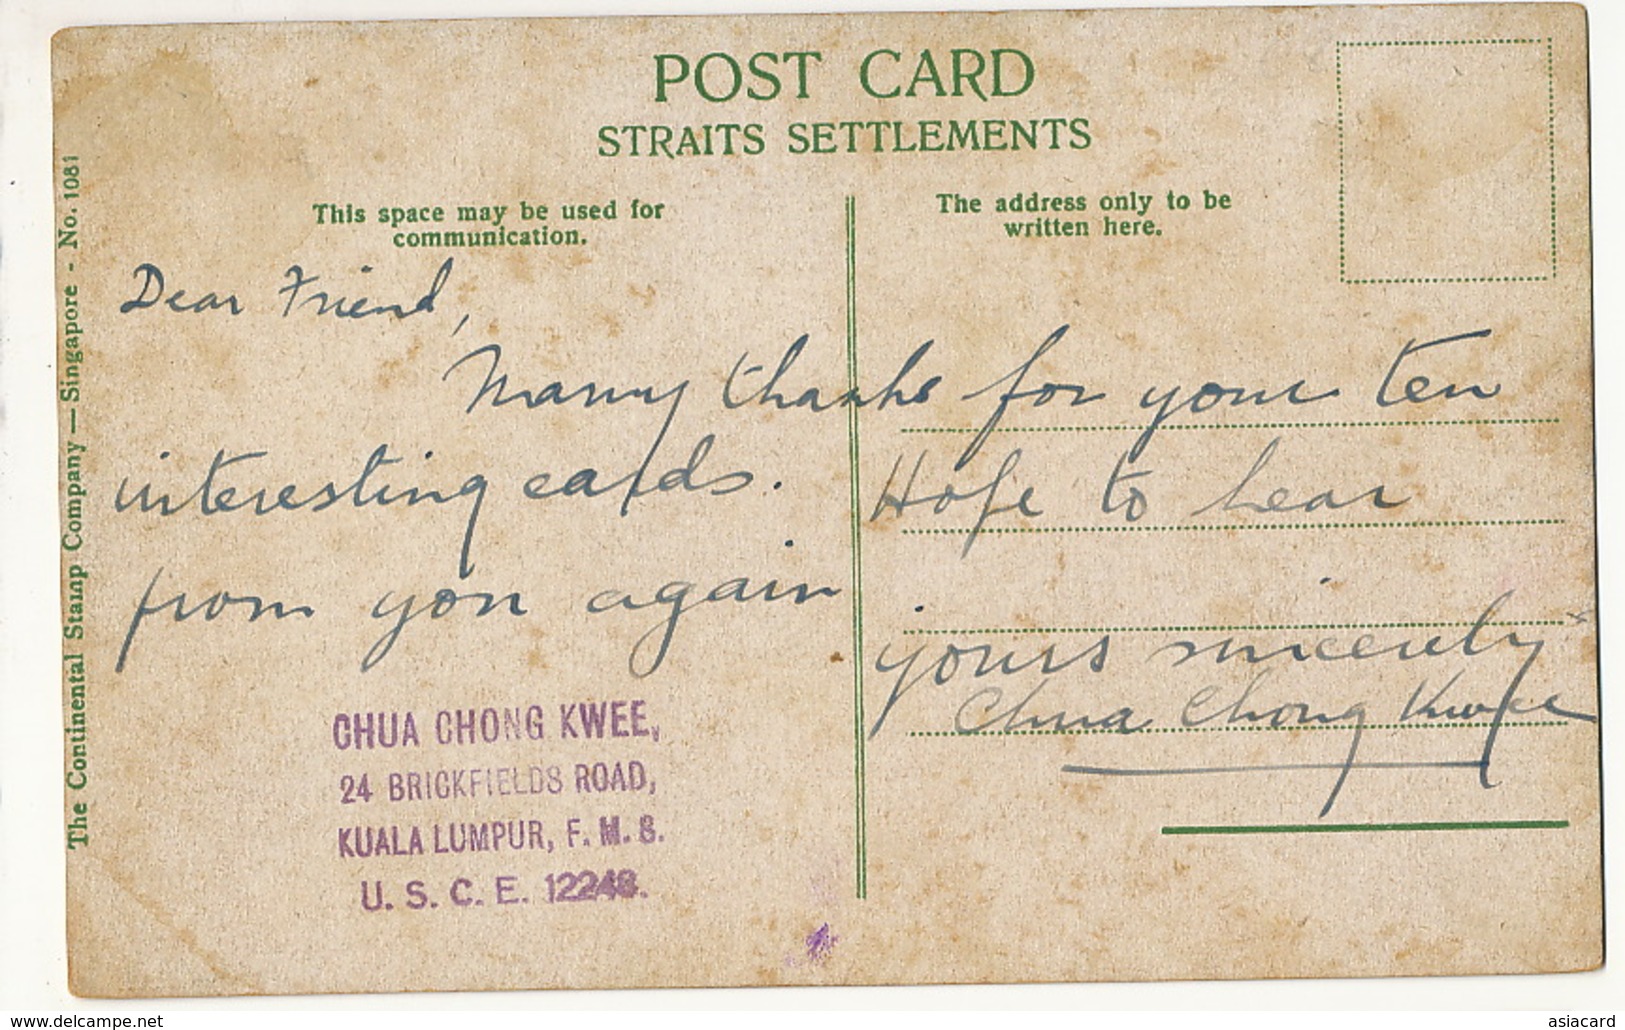 POST CARD
STRAITS SETTLEMENTS
This space may be used for
communication.
The address only to be
written here.
The Continental Stamp Company — Singapore - No. 1081
Dear Friend,
Many thanks for your ten
interesting cards. Hope to hear
from you again
yours sincerely
Chua Chong Kwee
CHUA CHONG KWEE,
24 BRICKFIELDS ROAD,
KUALA LUMPUR, F. M. S.
U. S. C. E. 12248.
www.delcampe.net
asiacard